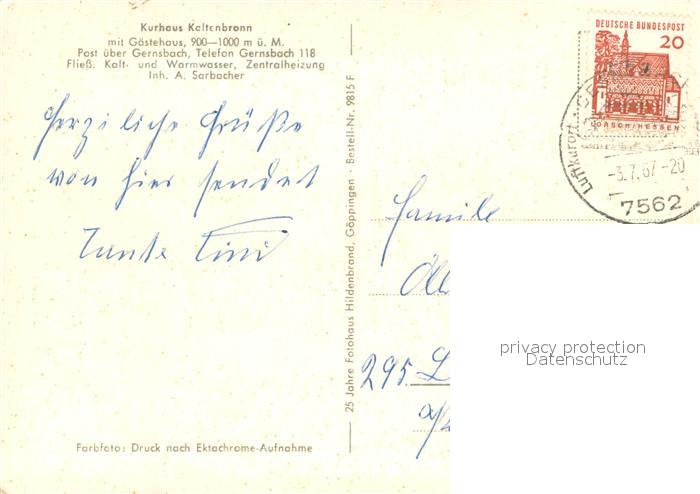 Kurhaus Kaltenbronn
mit Gästehaus, 900—1000 m ü. M.
Post über Gernsbach, Telefon Gernsbach 118
Fließ. Kalt- und Warmwasser, Zentralheizung
Inh. A. Sarbacher
Herzliche Grüße
von hier sendet
Tante Tini
25 Jahre Fotohaus Hildenbrand, Göppingen · Bestell-Nr. 9815 F
Farbfoto: Druck nach Ektachrome-Aufnahme
DEUTSCHE BUNDESPOST
20
LORSCH/HESSEN
Luftkurort
-3.7.67-20
7562
Familie
295 L
privacy protection
Datenschutz